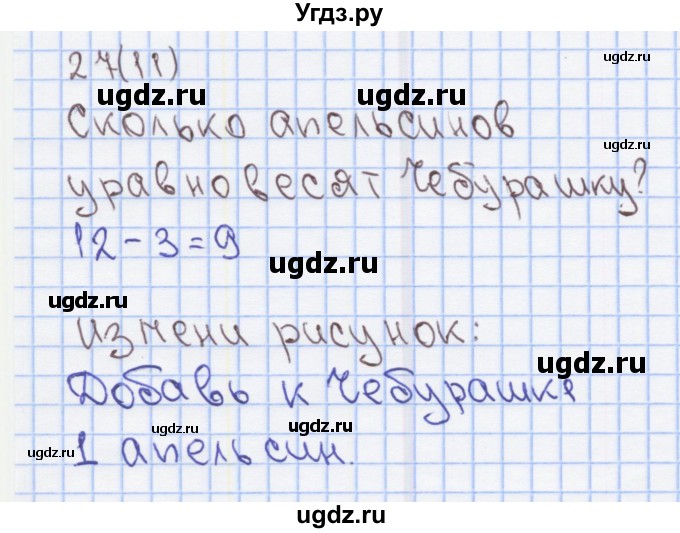 Угдз.ру
27(11)
ugdz.ru
ugdz.ru
ugdz.ru
Сколько апельсинов
ugdz.ru
уравновесят Чебурашку?
12-3=9
ugdz.ru
ugdz.ru
Измени рисунок:
ugdz.ru
Добавь к Чебурашке
ugdz.ru
ugdz.ru
ugdz.ru
1 апельсин.
ugdz.ru